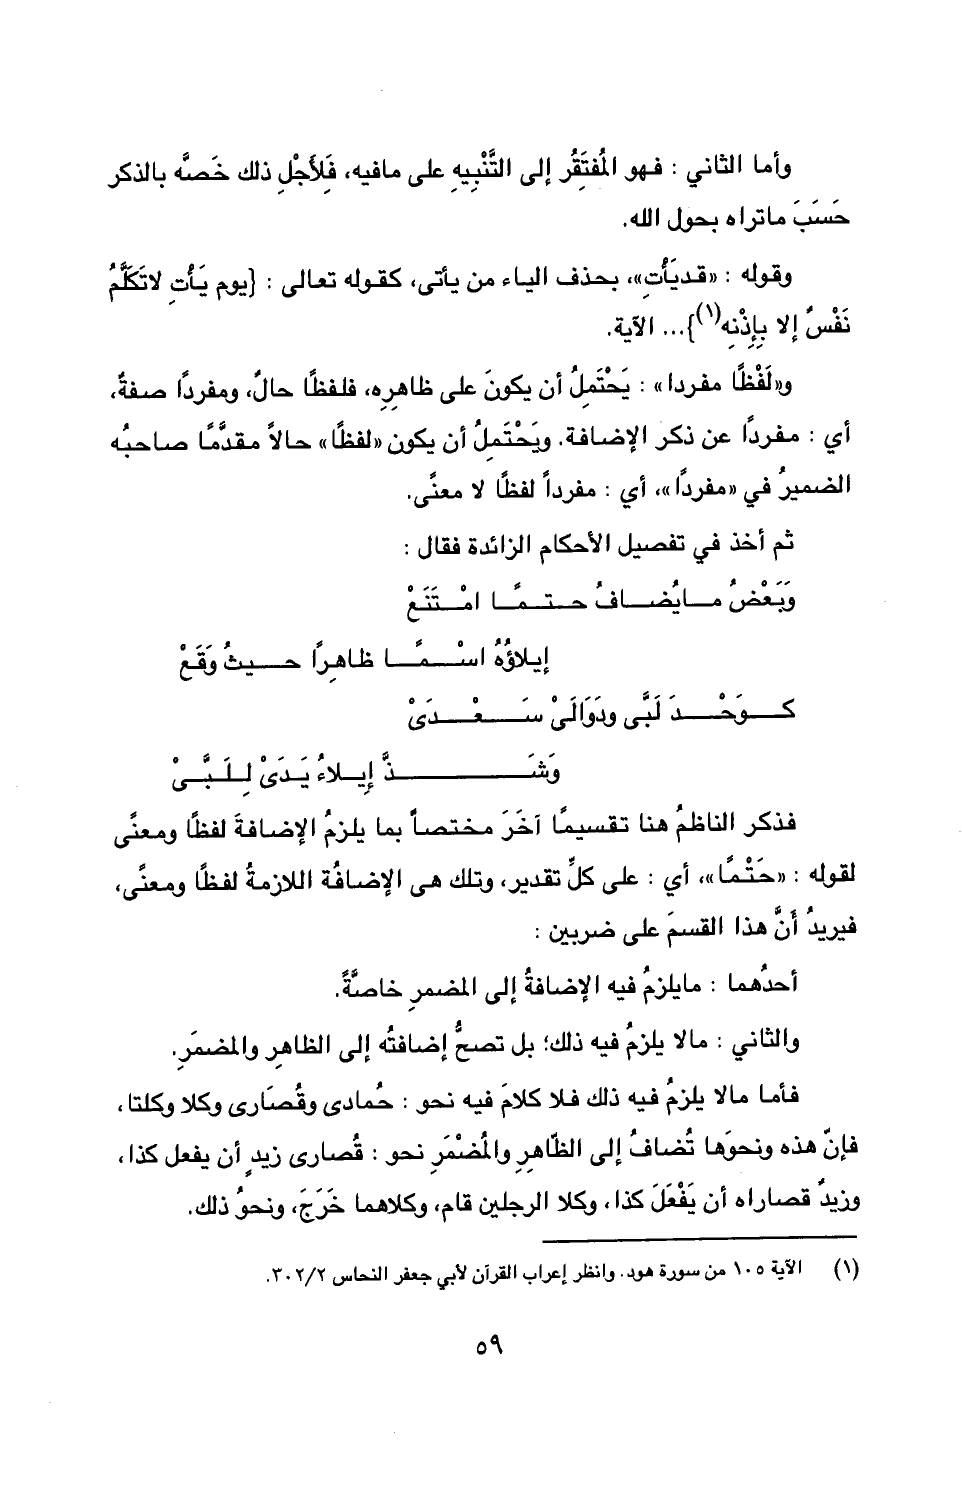 وأما الثاني : فهو المُفتَقِرُ إلى التَّنْبِيهِ على مافيه، فَلأَجْلِ ذلك خَصَّه بالذكر
حَسَبَ ماتراه بحول الله.
وقوله : «قديَأْتِ»، بحذف الياء من يأتى، كقوله تعالى : {يوم يَأْتِ لاتَكَلَّمُ
نَفْسٌ إلا بِإِذْنِه(١)}... الآية.
و«لَفْظًا مفردا» : يَحْتَمِلُ أن يكونَ على ظاهِرِه، فلفظًا حالٌ، ومفردًا صفةٌ،
أي : مفردًا عن ذكر الإضافة. ويَحْتَملُ أن يكون «لفظًا» حالاً مقدَّمًا صاحبُه
الضميرُ في «مفردًا»، أي : مفرداً لفظًا لا معنًى.
ثم أخذ في تفصيل الأحكام الزائدة فقال :
وَبَعْضُ مـــايُضـــافُ حـتـمًـا امْـتَنَعْ
إيلاؤُهُ اسْـــمًـــا ظاهِرًا حـــيثُ وَقَعْ
كـــوَحْـــدَ لَبَّى ودَوَالَىْ سَـــعْـــدَىْ
وَشَـــــذَّ إيـلاءُ يَـدَىْ لِـلَـبَّـىْ
فذكر الناظمُ هنا تقسيمًا آخَرَ مختصاً بما يلزمُ الإضافةَ لفظًا ومعنًى
لقوله : «حَتْمًا»، أي : على كلِّ تقدير، وتلك هى الإضافُة اللازمةُ لفظًا ومعنًى،
فيريدُ أَنَّ هذا القسمَ على ضربين :
أحدُهما : مايلزمُ فيه الإضافةُ إلى المضمرِ خاصَّةً.
والثاني : مالا يلزمُ فيه ذلك؛ بل تصحُّ إضافتُه إلى الظاهِر والمضمَرِ.
فأما مالا يلزمُ فيه ذلك فلا كلامَ فيه نحو : حُمادى وقُصَارى وكلا وكلتا،
فإنّ هذه ونحوَها تُضافُ إلى الظّاهِرِ والمُضْمَرِ نحو : قُصارى زيدٍ أن يفعل كذا،
وزيدٌ قصاراه أن يَفْعَلَ كذا، وكلا الرجلين قام، وكلاهما خَرَجَ، ونحوُ ذلك.
(١) الآية ١٠٥ من سورة هود. وانظر إعراب القرآن لأبي جعفر النحاس ٣٠٢/٢.
٥٩